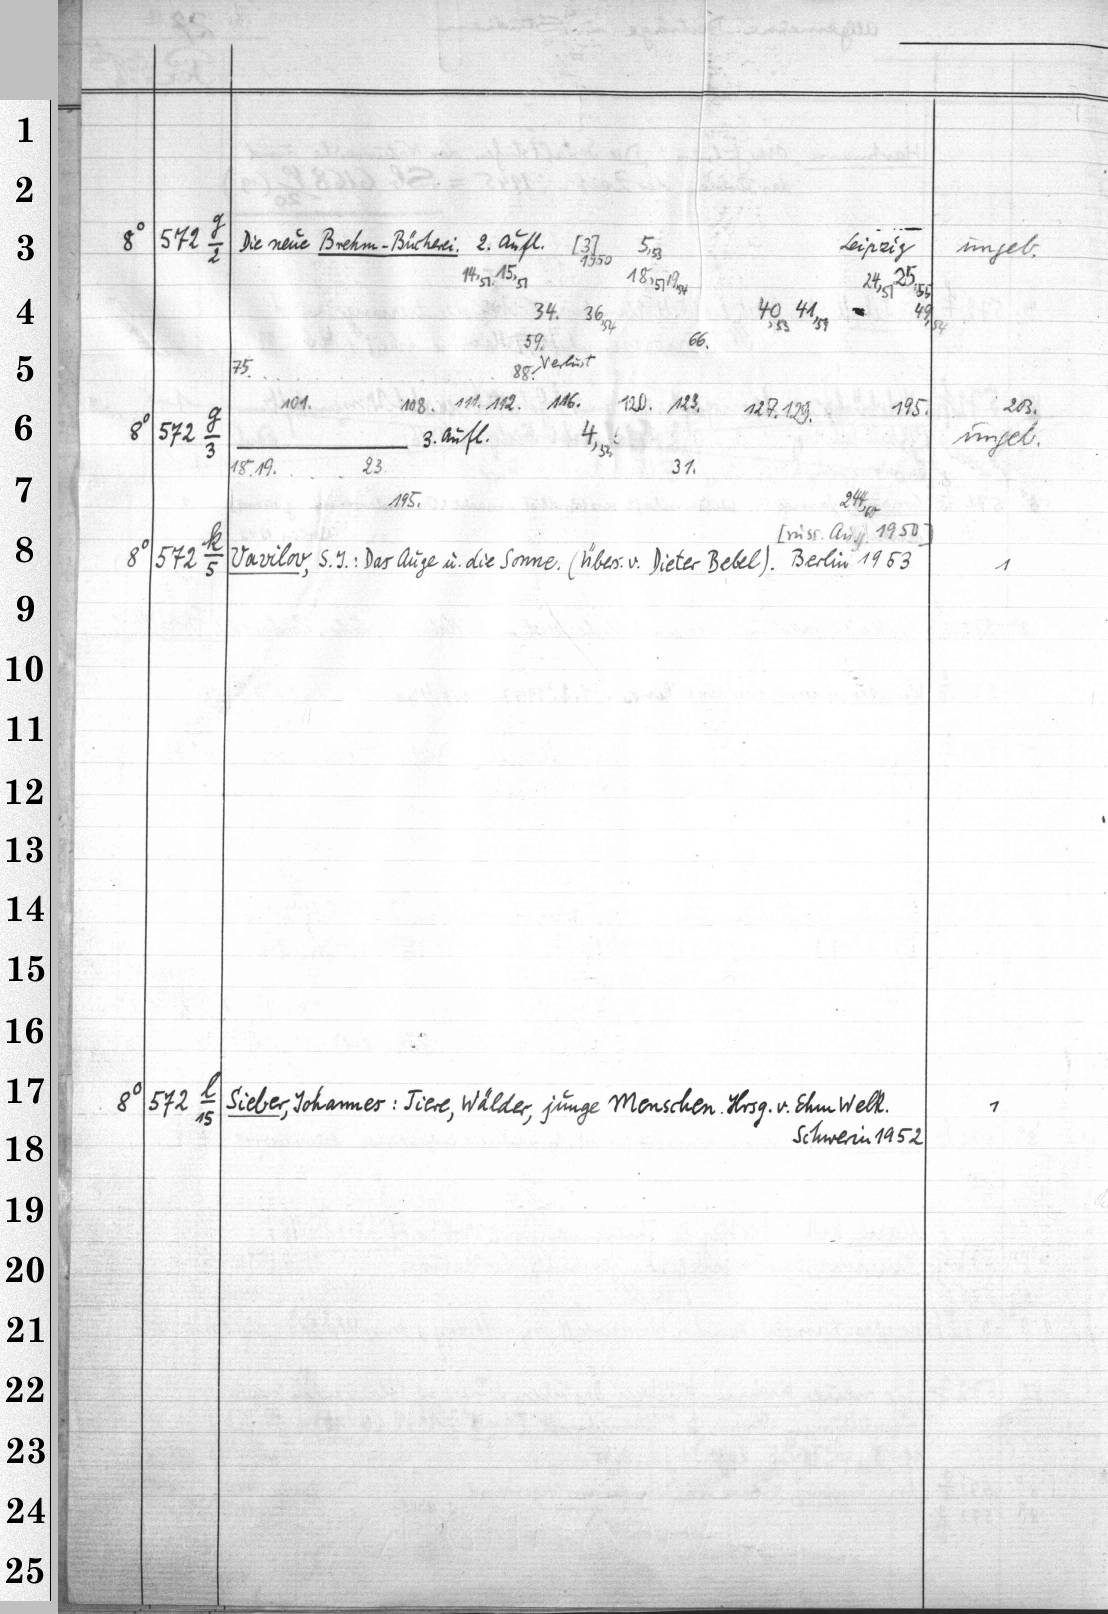 1
2
3 8° 572 g/2 Die neue Brehm-Bücherei. 2. Aufl. [3] 1950 5,53 Leipzig ungeb.
14,51 15,51 18,51 19,54 24,51 25,55
4 34. 36,54 40,53 41,59 - 49,54
59. 66.
5 75. 88. Verlust
101. 108. 111. 112. 116. 120. 123. 127. 129. 195. 203.
6 8° 572 g/3 3. Aufl. 4,53 ungeb.
18. 19. 23 31.
7 195. 244,60
[russ. Ausg. 1950]
8 8° 572 k/5 Vavilov, S. J.: Das Auge u. die Sonne. (Übers. v. Dieter Bebel). Berlin 1953 1
9
10
11
12
13
14
15
16
17 8° 572 l/15 Sieber, Johannes: Tiere, Wälder, junge Menschen. Hrsg. v. Ehm Welk. 1
18 Schwerin 1952
19
20
21
22
23
24
25